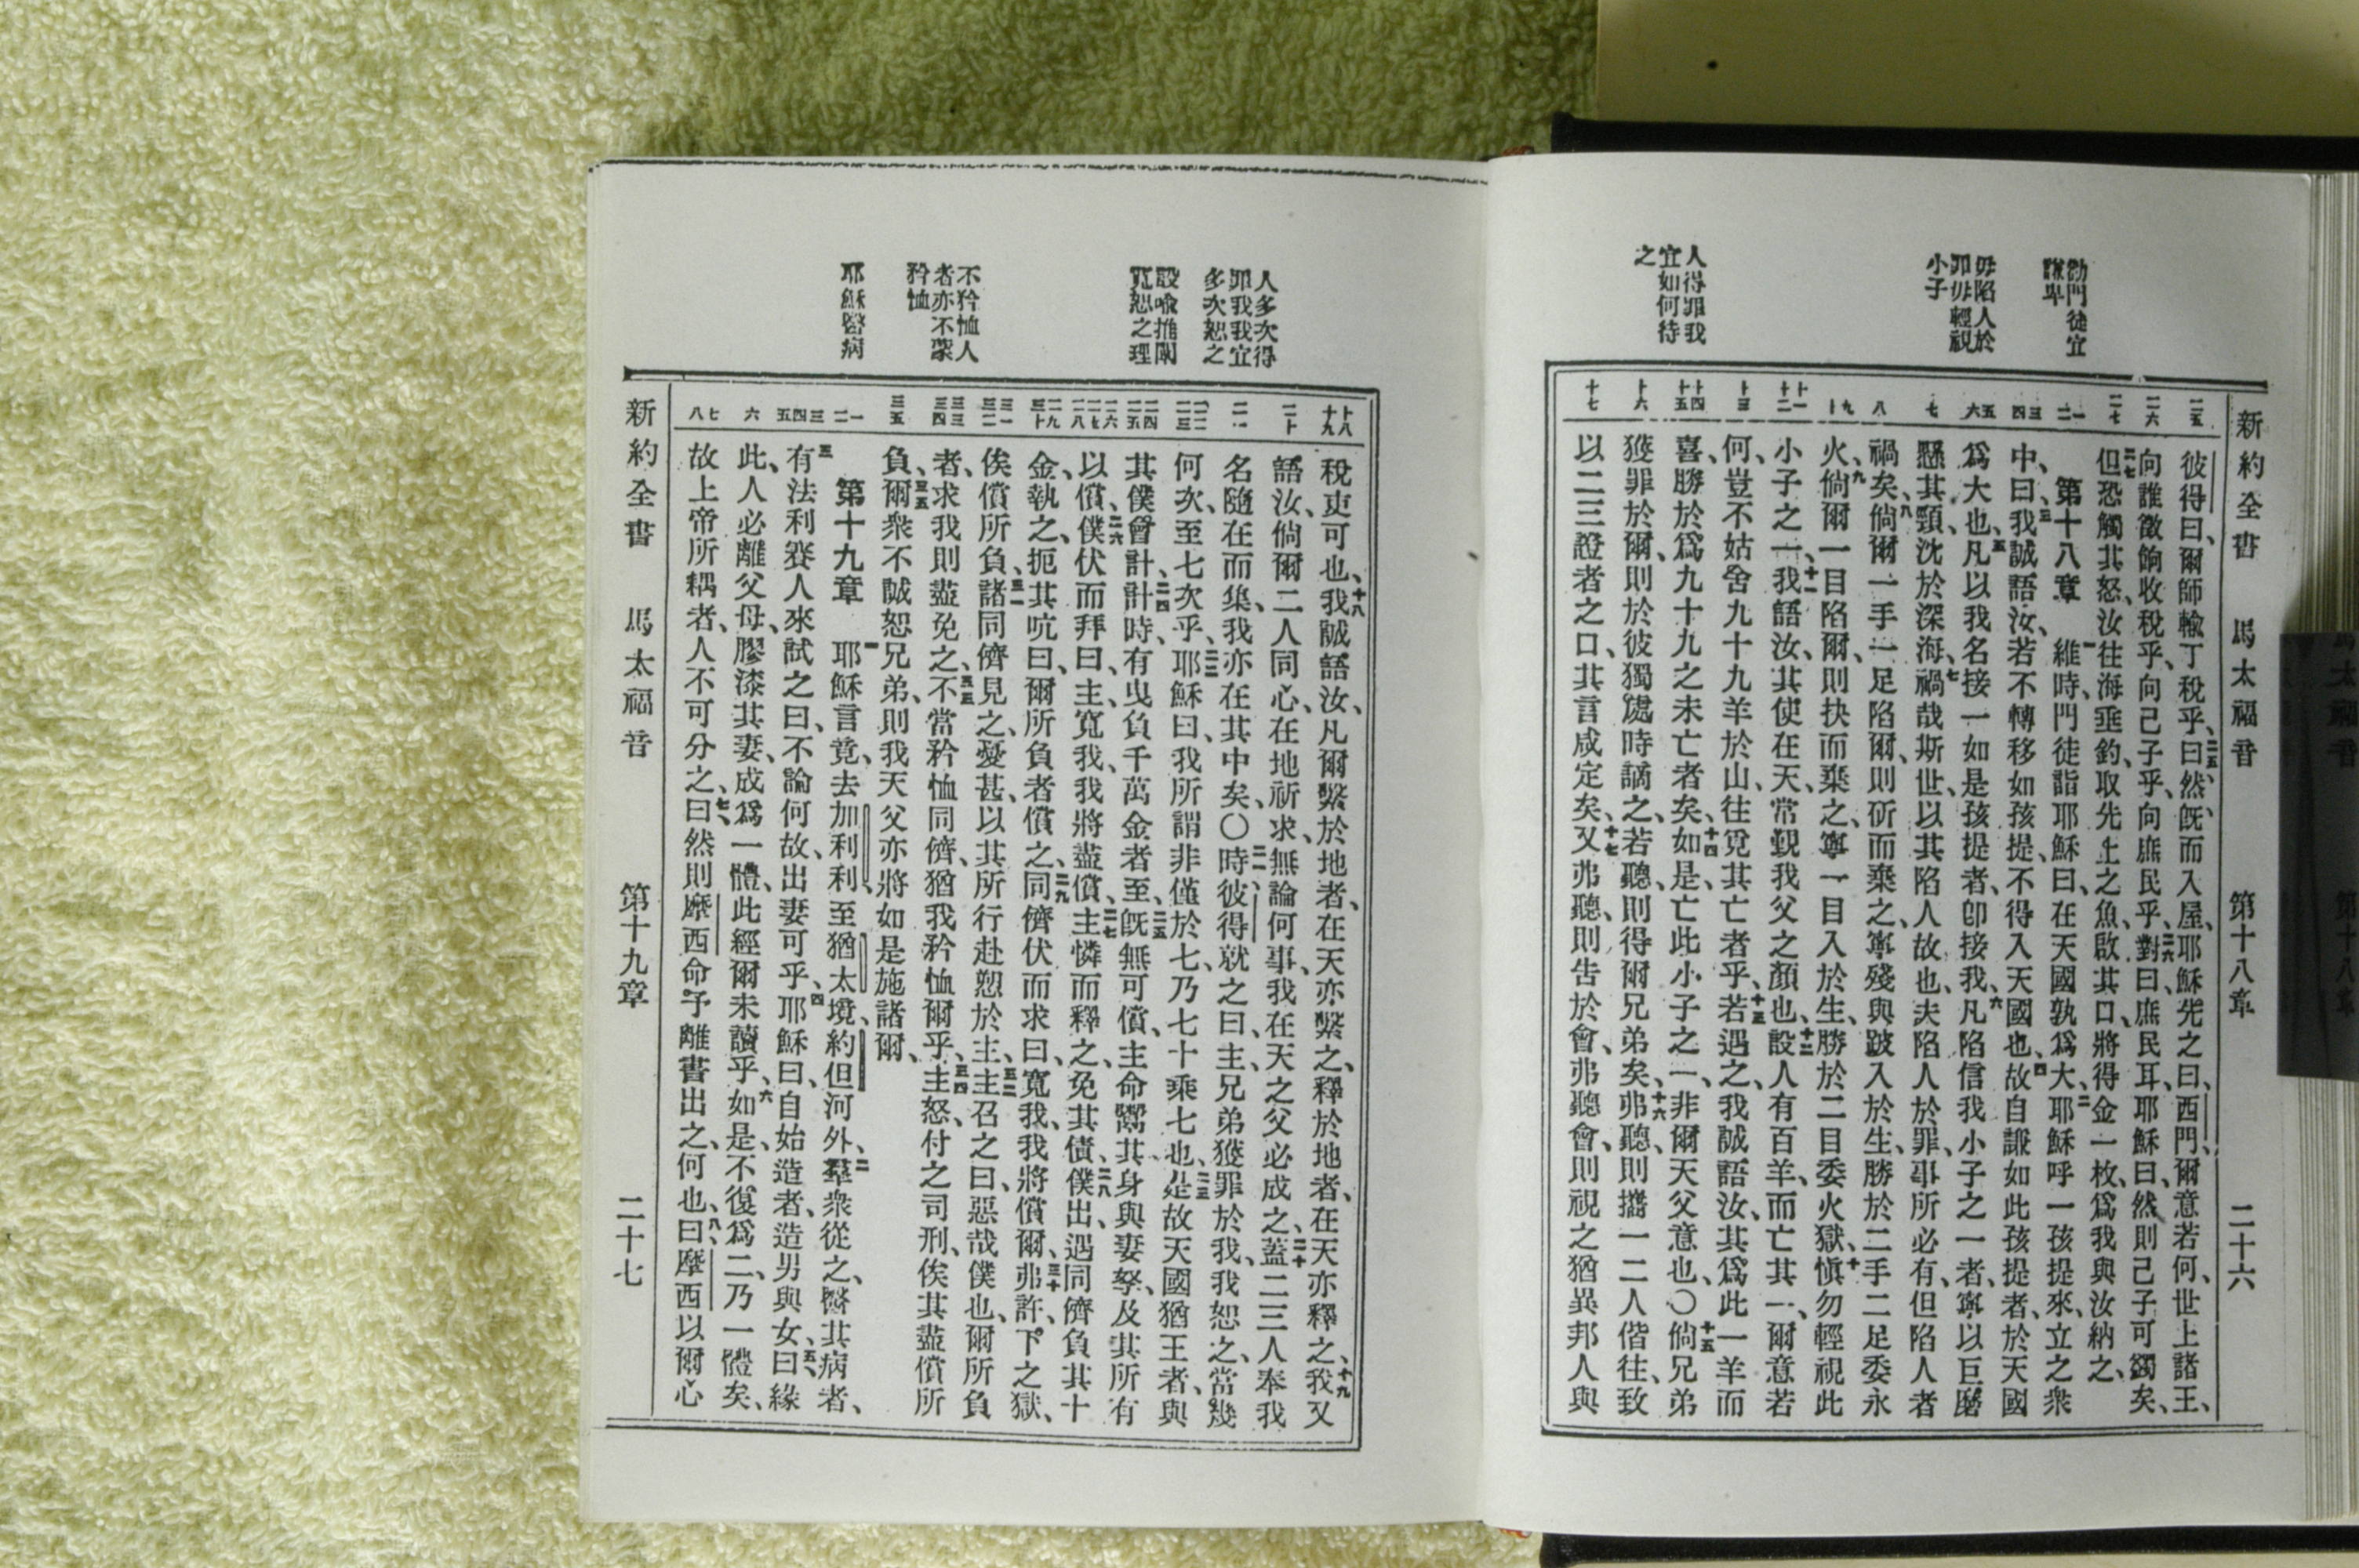 新約全書　馬太福音　第十八章　二十六
勸門徒宜
謙卑
毋陷人於
罪毋輕視
小子
人得罪我
宜如何待
之
二五　二六　二七　一二　三四　五六　七　八　九十　十一十二　十三　十四十五　十六　十七
彼得曰、爾師輸丁稅乎、二五曰然、旣而入屋、耶穌先之曰、西門、爾意若何、世上諸王、
向誰徵餉收稅乎、向己子乎、向庶民乎、二六對曰、庶民耳、耶穌曰、然則己子可蠲矣、
二七但恐觸其怒、汝往海垂釣、取先上之魚、啟其口、將得金一枚、爲我與汝納之、
第十八章　一維時、門徒詣耶穌曰、在天國孰爲大、二耶穌呼一孩提來、立之衆
中、三曰、我誠語汝、若不轉移如孩提、不得入天國也、四故自謙如此孩提者、於天國
爲大也、五凡以我名接一如是孩提者、卽接我、六凡陷信我小子之一者、寧以巨磨
懸其頸、沈於深海、七禍哉斯世、以其陷人故也、夫陷人於罪、事所必有、但陷人者
禍矣、八倘爾一手一足陷爾、則斫而棄之、寧殘與跛入於生、勝於二手二足委永
火、九倘爾一目陷爾、則抉而棄之、寧一目入於生、勝於二目委火獄、十愼勿輕視此
小子之一、十一我語汝、其使在天、常覲我父之顏也、十二設人有百羊、而亡其一、爾意若
何、豈不姑舍九十九羊於山、往覓其亡者乎、十三若遇之、我誠語汝、其爲此一羊而
喜、勝於爲九十九之未亡者矣、十四如是、亡此小子之一、非爾天父意也、〇十五倘兄弟
獲罪於爾、則於彼獨處時謫之、若聽、則得爾兄弟矣、十六弗聽、則攜一二人偕往、致
以二三證者之口、其言咸定矣、十七又弗聽、則告於會、弗聽會、則視之猶異邦人與
人多次得
罪我我宜
多次恕之
設喩推闡
寬恕之理
不矜恤人
者亦不蒙
矜恤
耶穌醫病
十八十九　二十　二一　二二二三　二四二五　二六二七二八　二九三十　三一三二　三三三四　三五　一二　三四五　六　七八
稅吏可也、十八我誠語汝、凡爾繫於地者、在天亦繫之、釋於地者、在天亦釋之、十九我又
語汝、倘爾二人同心、在地祈求、無論何事、我在天之父必成之、二十蓋二三人奉我
名隨在而集、我亦在其中矣、〇二一時、彼得就之曰、主、兄弟獲罪於我、我恕之、當幾
何次、至七次乎、二二耶穌曰、我所謂非僅於七、乃七十乘七也、二三是故天國猶王者、與
其僕會計、二四計時、有曳負千萬金者至、二五旣無可償、主命鬻其身與妻孥、及其所有
以償、二六僕伏而拜曰、主、寬我、我將盡償、二七主憐而釋之、免其債、二八僕出、遇同儕負其十
金、執之、扼其吭曰、爾所負者償之、二九同儕伏而求曰、寬我、我將償爾、三十弗許、下之獄、
俟償所負、三一諸同儕見之、憂甚、以其所行赴愬於主、三二主召之曰、惡哉僕也、爾所負
者、求我則盡免之、三三不當矜恤同儕、猶我矜恤爾乎、三四主怒、付之司刑、俟其盡償所
負、三五爾衆不誠恕兄弟、則我天父亦將如是施諸爾、
第十九章　一耶穌言竟、去加利利、至猶太境、約但河外、二羣衆從之、醫其病者、
三有法利賽人來試之曰、不論何故、出妻可乎、四耶穌曰、自始造者、造男與女、五曰、緣
此、人必離父母、膠漆其妻、成爲一體、此經爾未讀乎、六如是、不復爲二、乃一體矣、
故上帝所耦者、人不可分之、七曰、然則摩西命予離書出之、何也、八曰、摩西以爾心
新約全書　馬太福音　第十九章　二十七